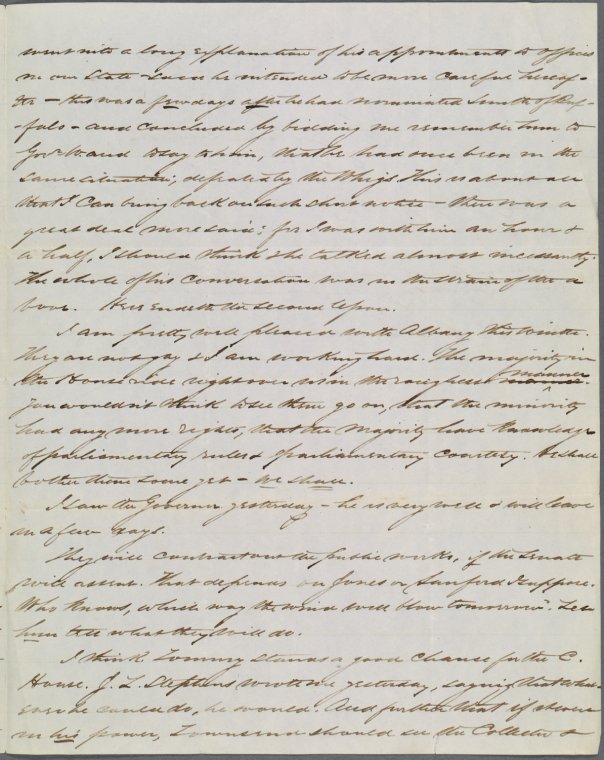 went into a long explanation of his appointments to offices
in our State & says he intended to be more careful hereaf-
ter - this was a few days after he had nominated Smith of Buf-
-falo - and concluded by bidding me remember him to
Gov. and to say to him, that he had once been in the
same situation, defeated by the Whigs. This is about all
that I can bring back on such short notice - there was a
great deal more said: for I was with him an hour &
a half, I should think & he talked almost incessantly.
The whole of his conversation was in the strain of the a
bove. Here endeth the second
I am pretty well pleased with Albany this winter.
They are not gay & I am working hard. The majority in
the House ride right over us in the roughest manner.
You wouldn't think to see them go on, that the minority
had any more rights, than the majority have knowledge
of parliamentary rules & parliamentary courtesy. We shall
bother them some yet - we shall.
I saw the Governor yesterday - he is very well & will leave
in a few days.
They will contract out the public works, if the Senate
will assent. That depends on Jones or Sanford I suppose.
Who knows, which way the wind will blow tomorrow. Let
him tell what they will do.
I think Tommy stands a good chance for the C.
House. J. L. Stephens wrote me yesterday, saying that what-
ever he could do, he would. And further that if it were
in his power, Townsend should see the Collector &